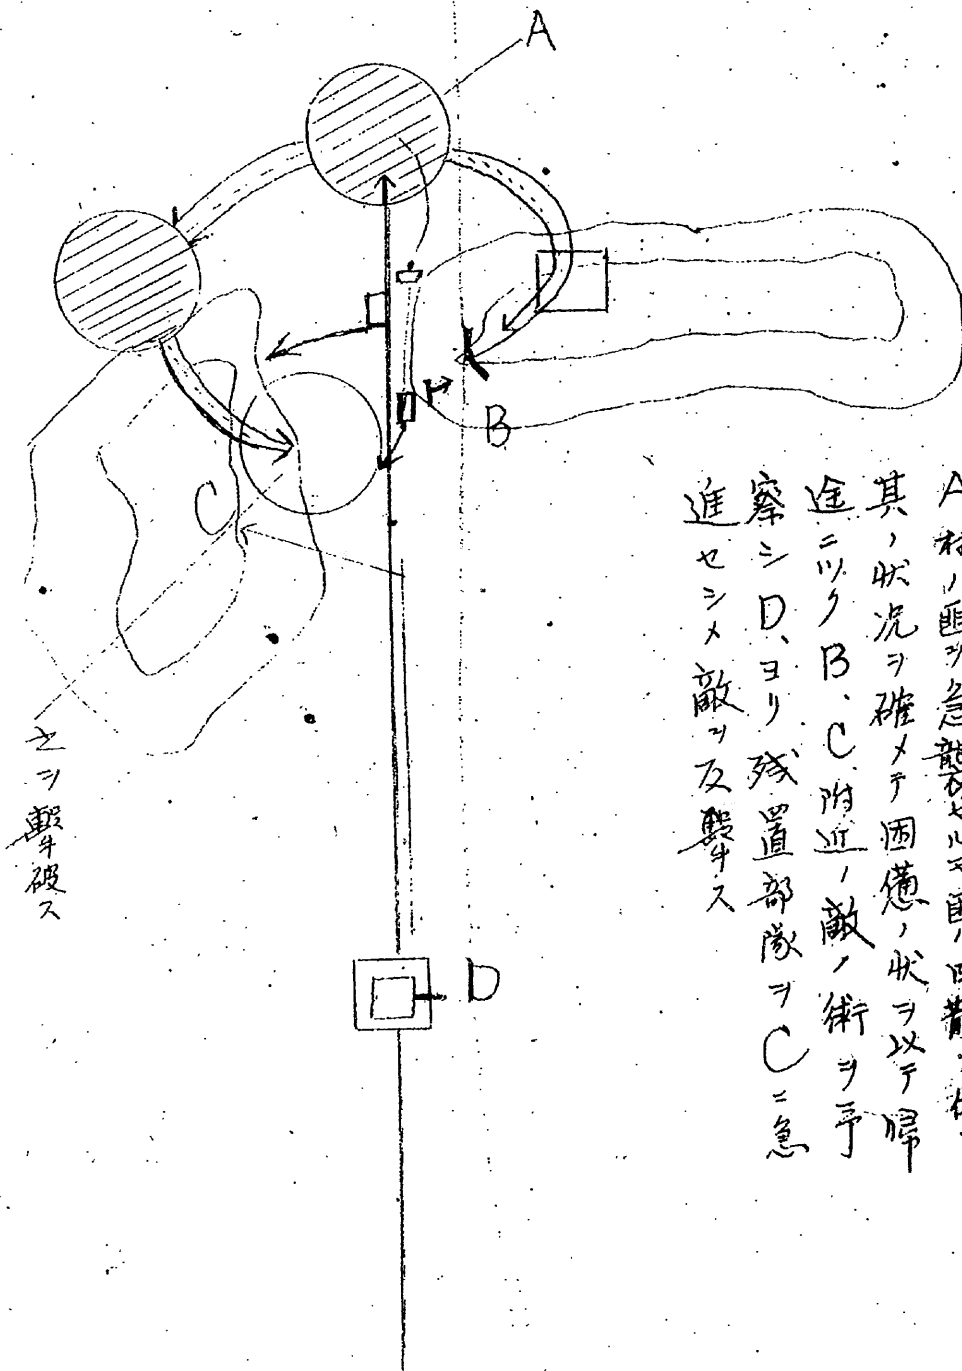 A
B
C
D
A村ノ匪ヲ急襲セル
其ノ状況ヲ確メテ困憊ノ状ヲ以テ帰
途ニツクB、C附近ノ敵ノ術ヲ予
察シD、ヨリ残置部隊ヲC二急
進セシメ敵ヲ反撃ス
之ヲ撃破ス